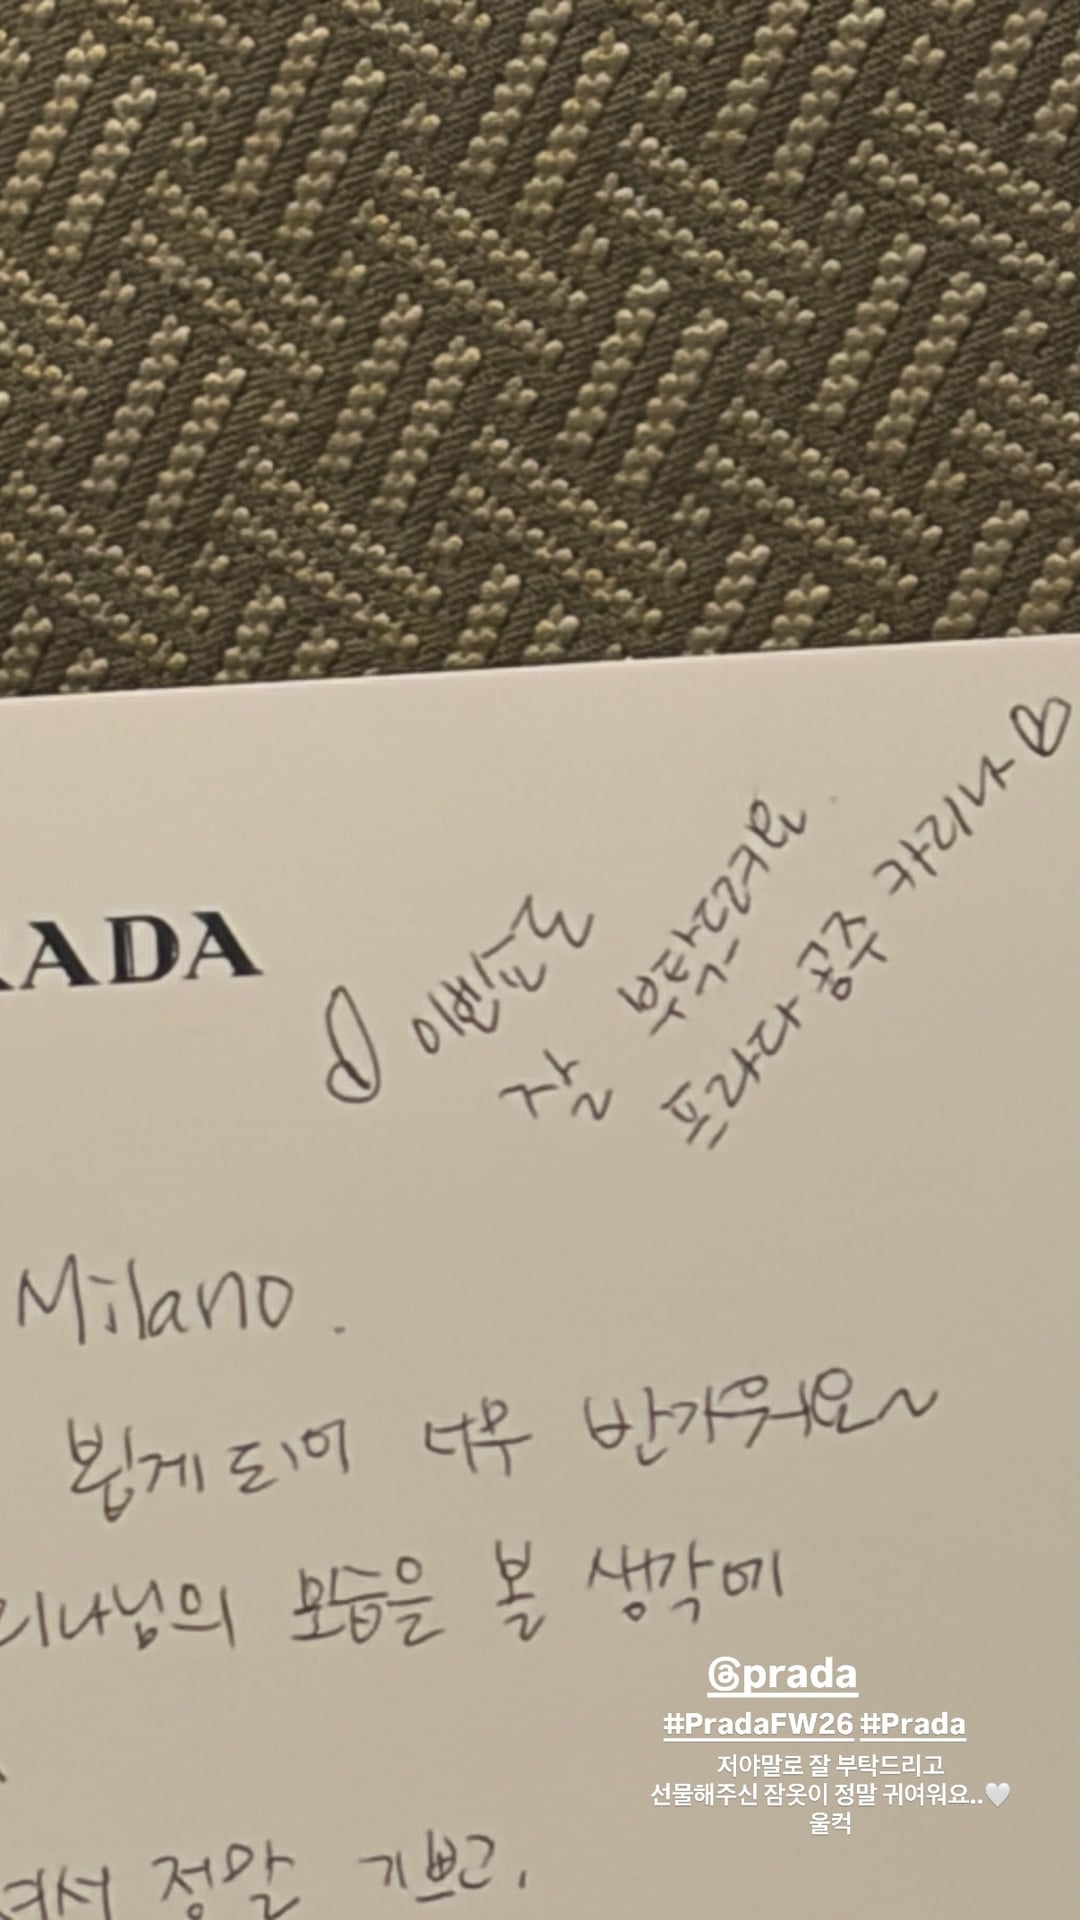 RADA
이번쇼도
잘 부탁드려요
프라다 공주 카리나♡
Milano.
뵙게되어 너무 반가워요~
리나님의 모습을 볼 생각에
@prada
#PradaFW26 #Prada
저야말로 잘 부탁드리고
선물해주신 잠옷이 정말 귀여워요..🤍
울컥
셔서 정말 기쁘고,